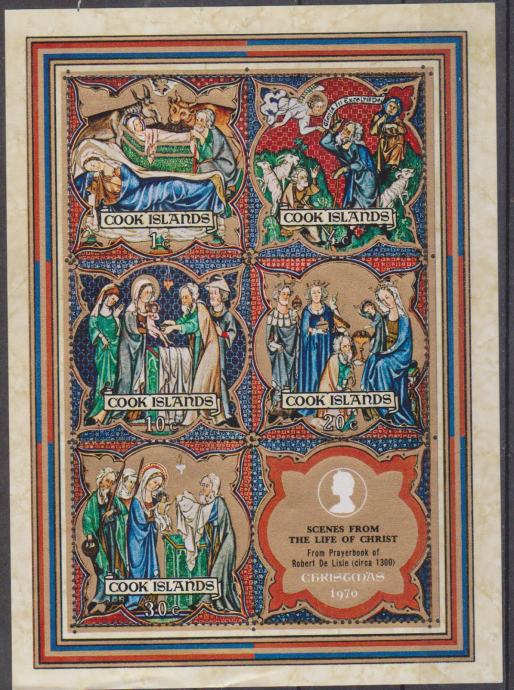 COOK ISLANDS
1c
COOK ISLANDS
COOK ISLANDS
10c
COOK ISLANDS
20c
COOK ISLANDS
30c
SCENES FROM
THE LIFE OF CHRIST
From Prayerbook of
Robert De Lisle (circa 1300)
CHRISTMAS
1970